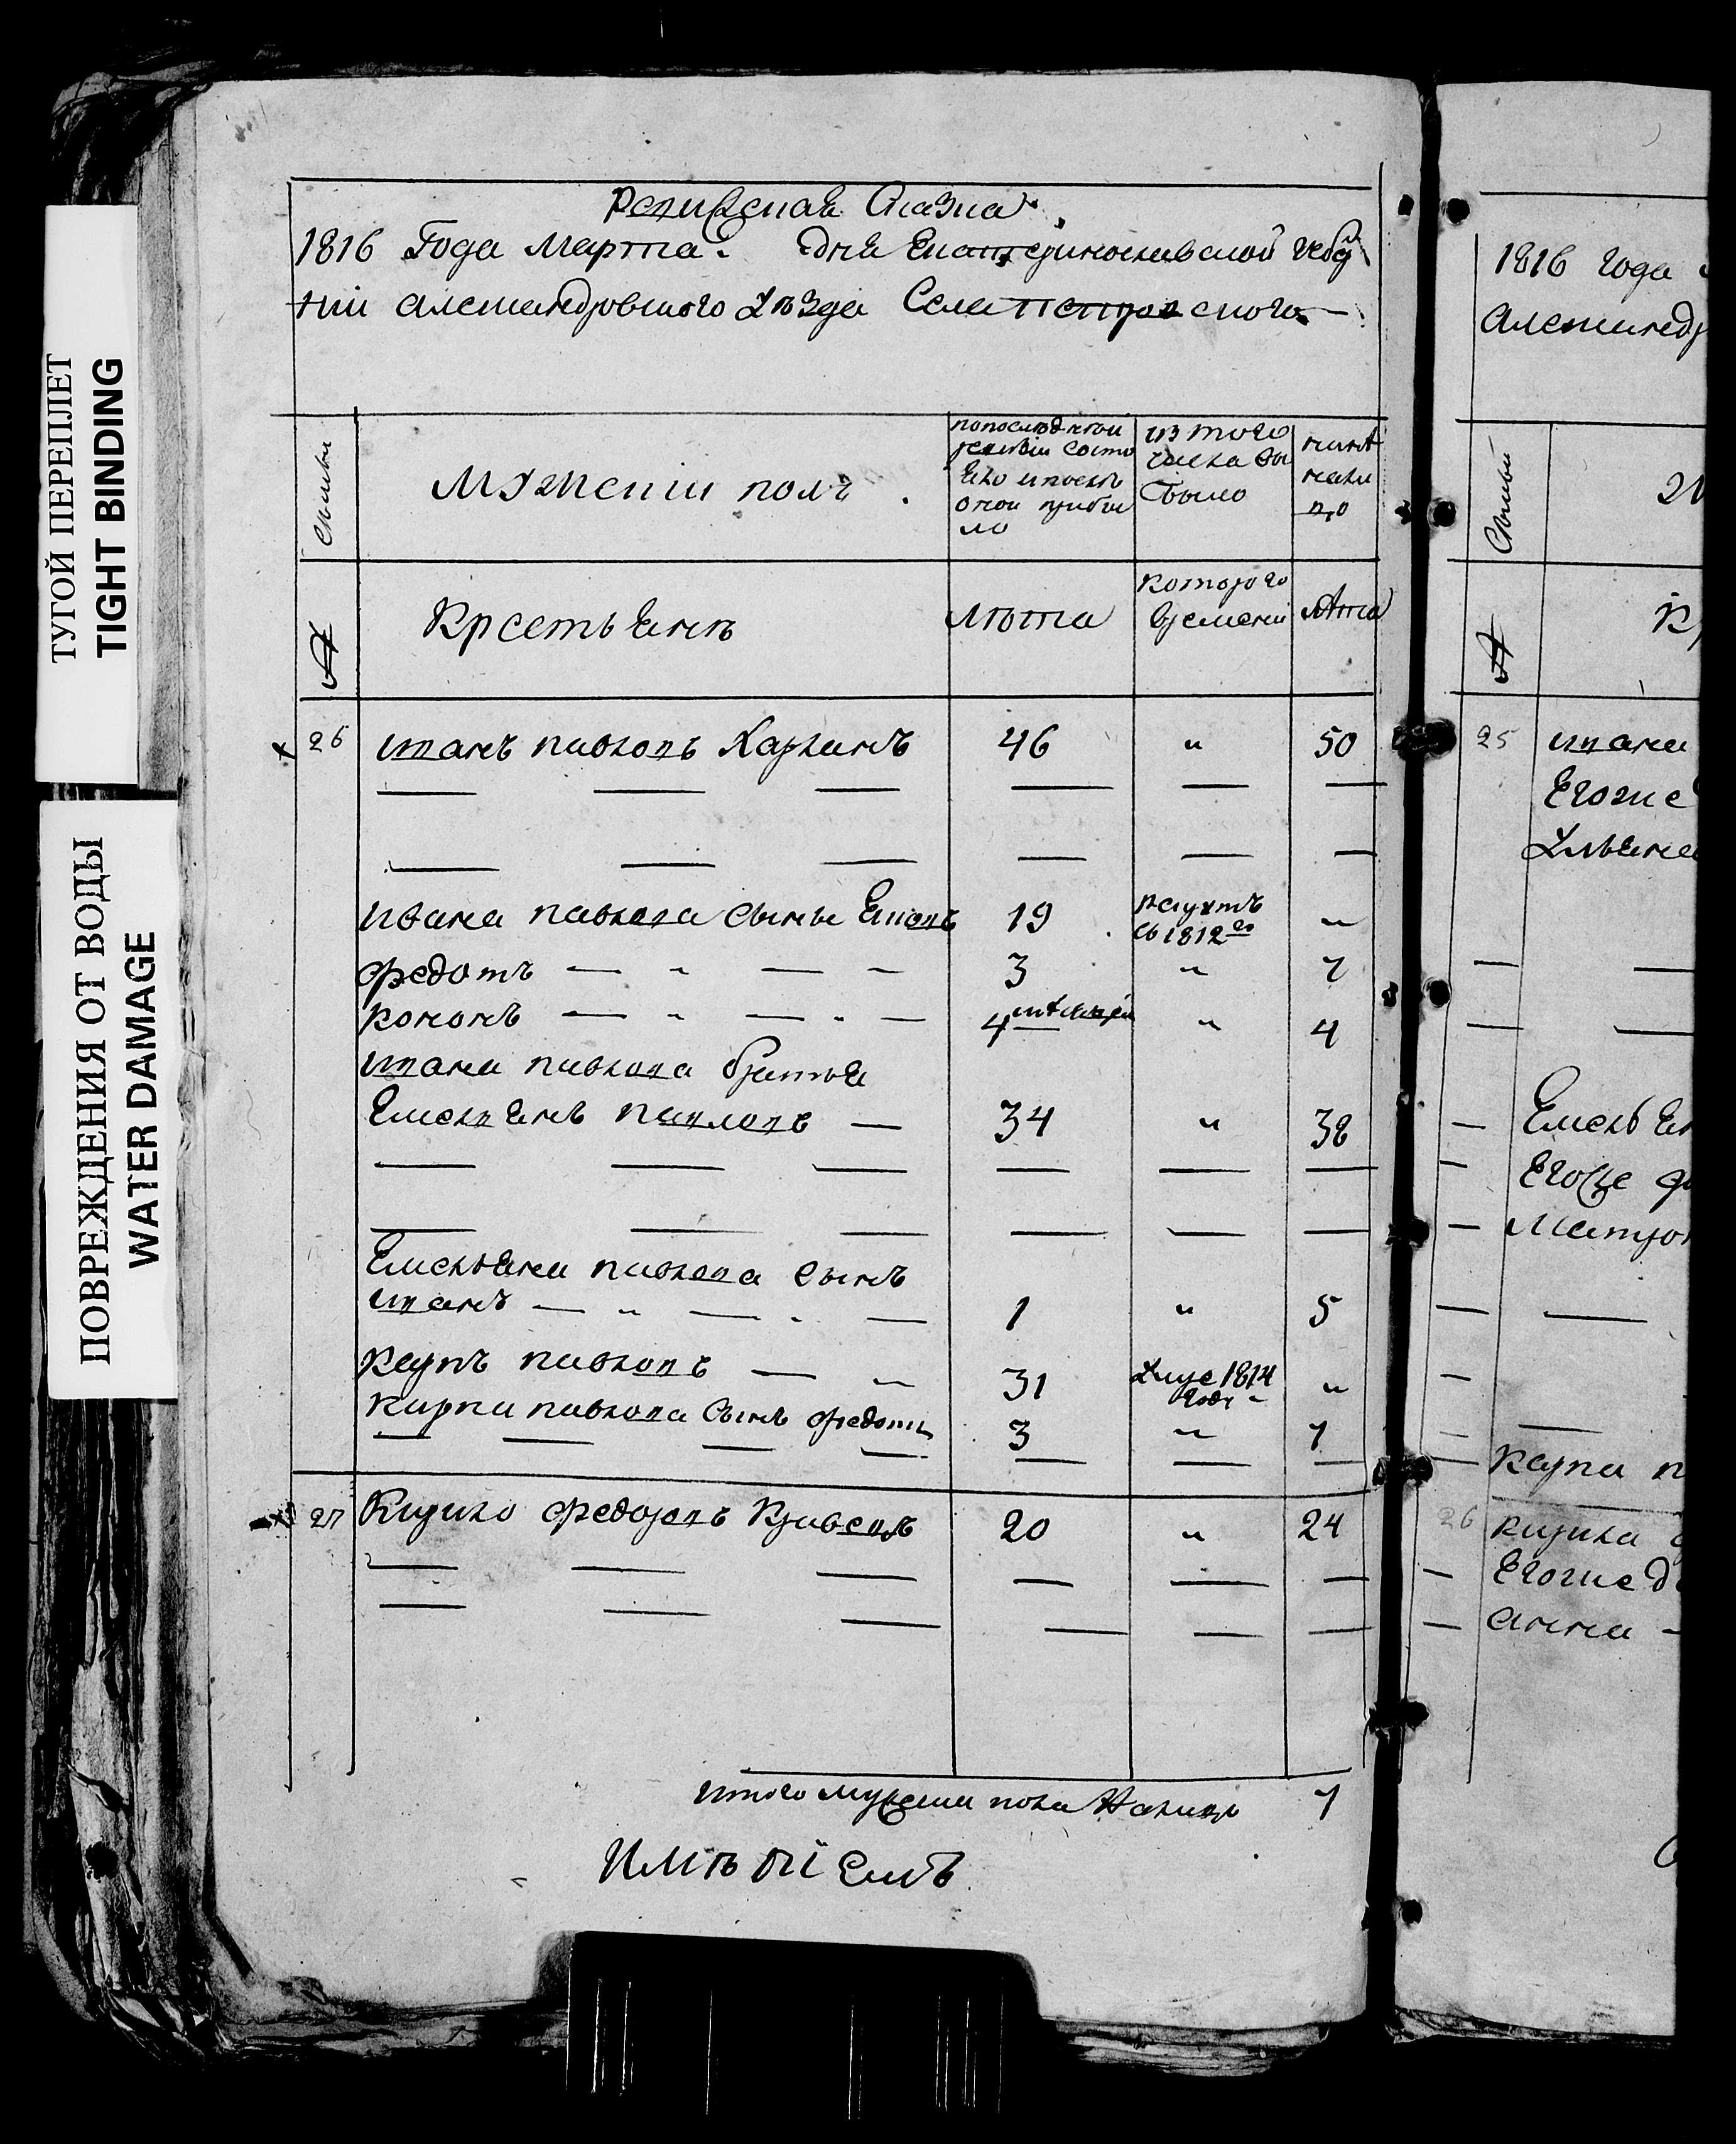 ТУГОЙ ПЕРЕПЛЕТ
TIGHT BINDING
ПОВРЕЖДЕНИЯ ОТ ВОДЫ
WATER DAMAGE
Ревизская Сказка
1816 Года Марта дня Екатеринославской губер
нии Александровского уезда Села Петровского
Семьи
Мужеский полъ
попоследней
ревизии состо
яло и после
оной прибы
ло
из того
числа вы
было
ныне
нали
цо
№
Крестьянъ
Лѣта
которого
времени
Лѣта
26 иванъ павловъ Харлинъ 46 " 50
ивана павлова сынья 19 1812го "
федотъ — " — — 3 " 7
кононъ — " — " — 4 " 4
ивана павлова братья
Емельянъ павловъ — 34 " 38
Емельяна павлова сынъ
иванъ — " — . — 1 " 5
карпъ павловъ — " 31 умре 1814 "
года
карпа павлова сынъ федотъ 3 " 7
27 кирило федоровъ 20 " 24
итого мужеска пола налицо 7
1816 года
Александр
Семьи
№
К
25 ивана
Егоже
Ульяна
Емелья
Матро
карпа п
26 кирила
Егоже д
анна —